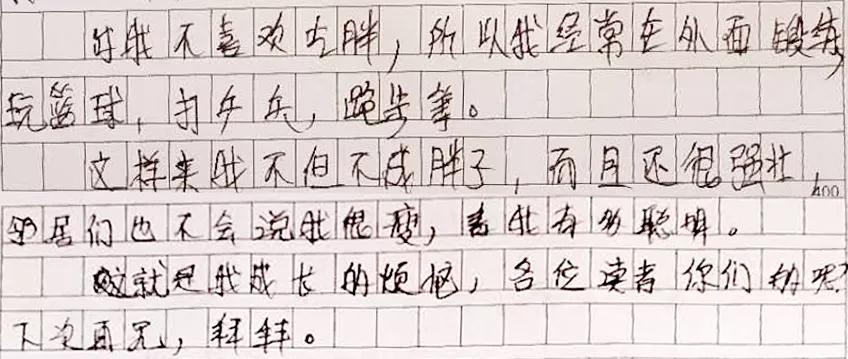 我不喜欢长胖，所以我经常在外面锻练，
玩篮球，打乒乓，跑步等。
文样来我不但不成胖子，而且还很强壮，
400
邻居们也不会说我很瘦，我有多聪明。
这就是我成长的烦恼，各位读者你们的呢？
下次再见，拜拜。